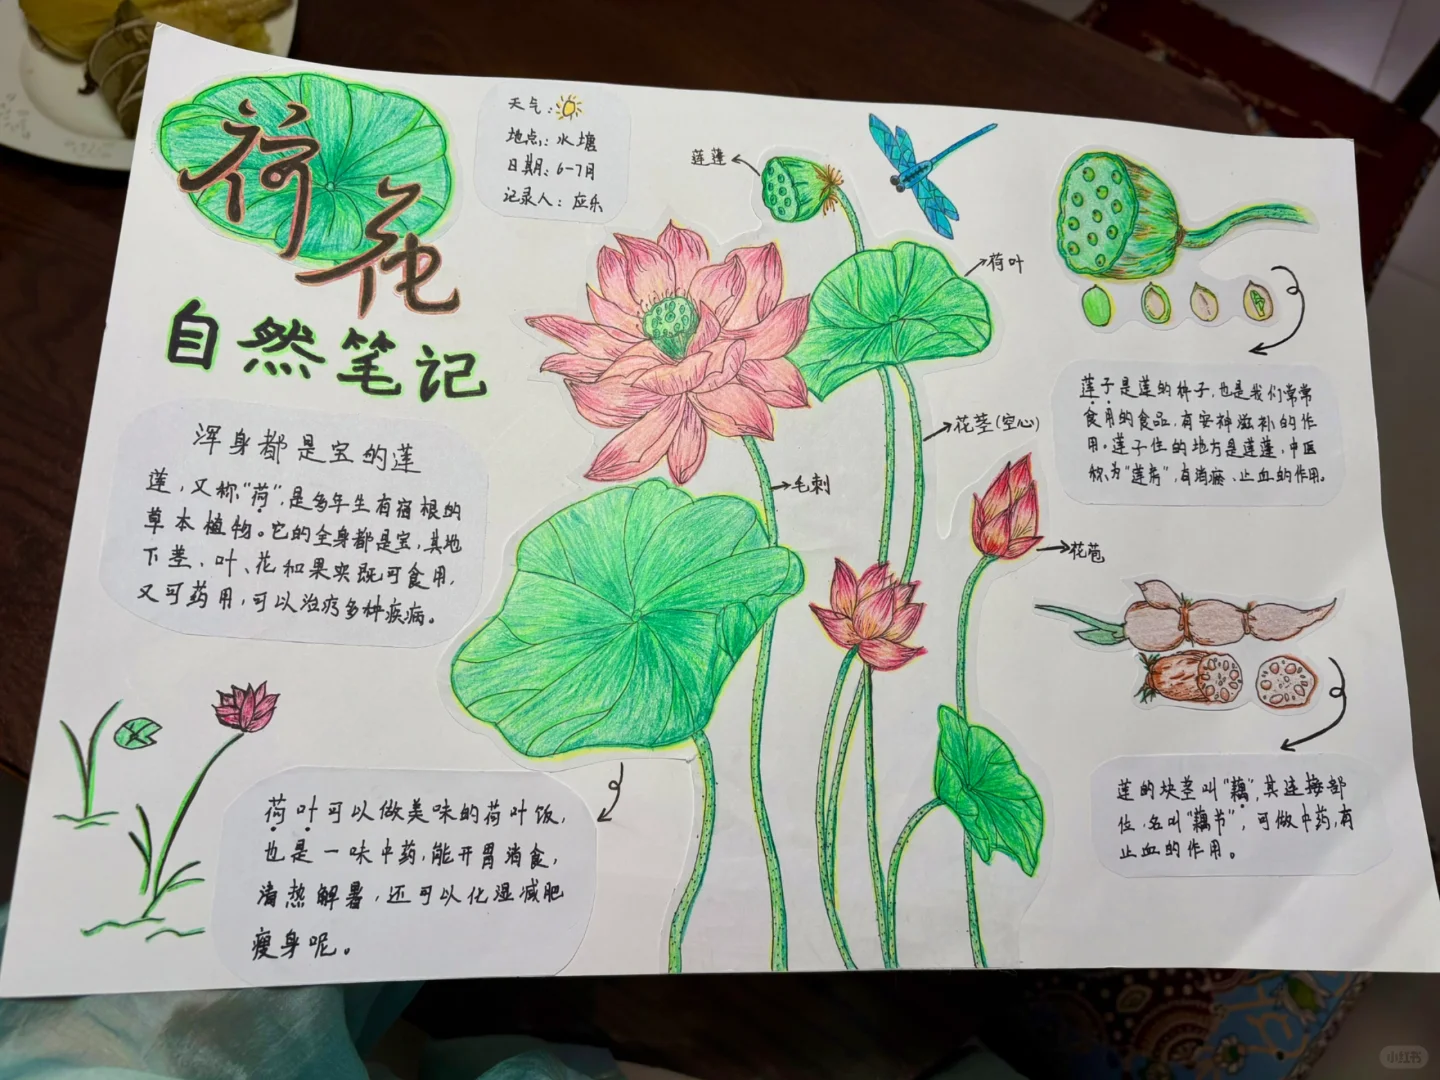 荷花
自然笔记
天气:
地点: 水塘
日期: 6-7月
记录人: 应乐
浑身都是宝的莲
莲,又称“荷”,是多年生有宿根的
草本植物。它的全身都是宝,其地
下茎、叶、花和果实既可食用,
又可药用,可以治疗多种疾病。
荷叶可以做美味的荷叶饭,
也是一味中药,能开胃消食,
清热解暑,还可以化湿减肥
瘦身呢。
莲蓬
荷叶
花茎(空心)
毛刺
花苞
莲子是莲的种子,也是我们常常
食用的食品,有安神滋补的作
用。莲子住的地方是莲蓬,中医
称为“莲房”,有消瘀、止血的作用。
莲的块茎叫“藕”,其连接部
位,名叫“藕节”,可做中药,有
止血的作用。
小红书